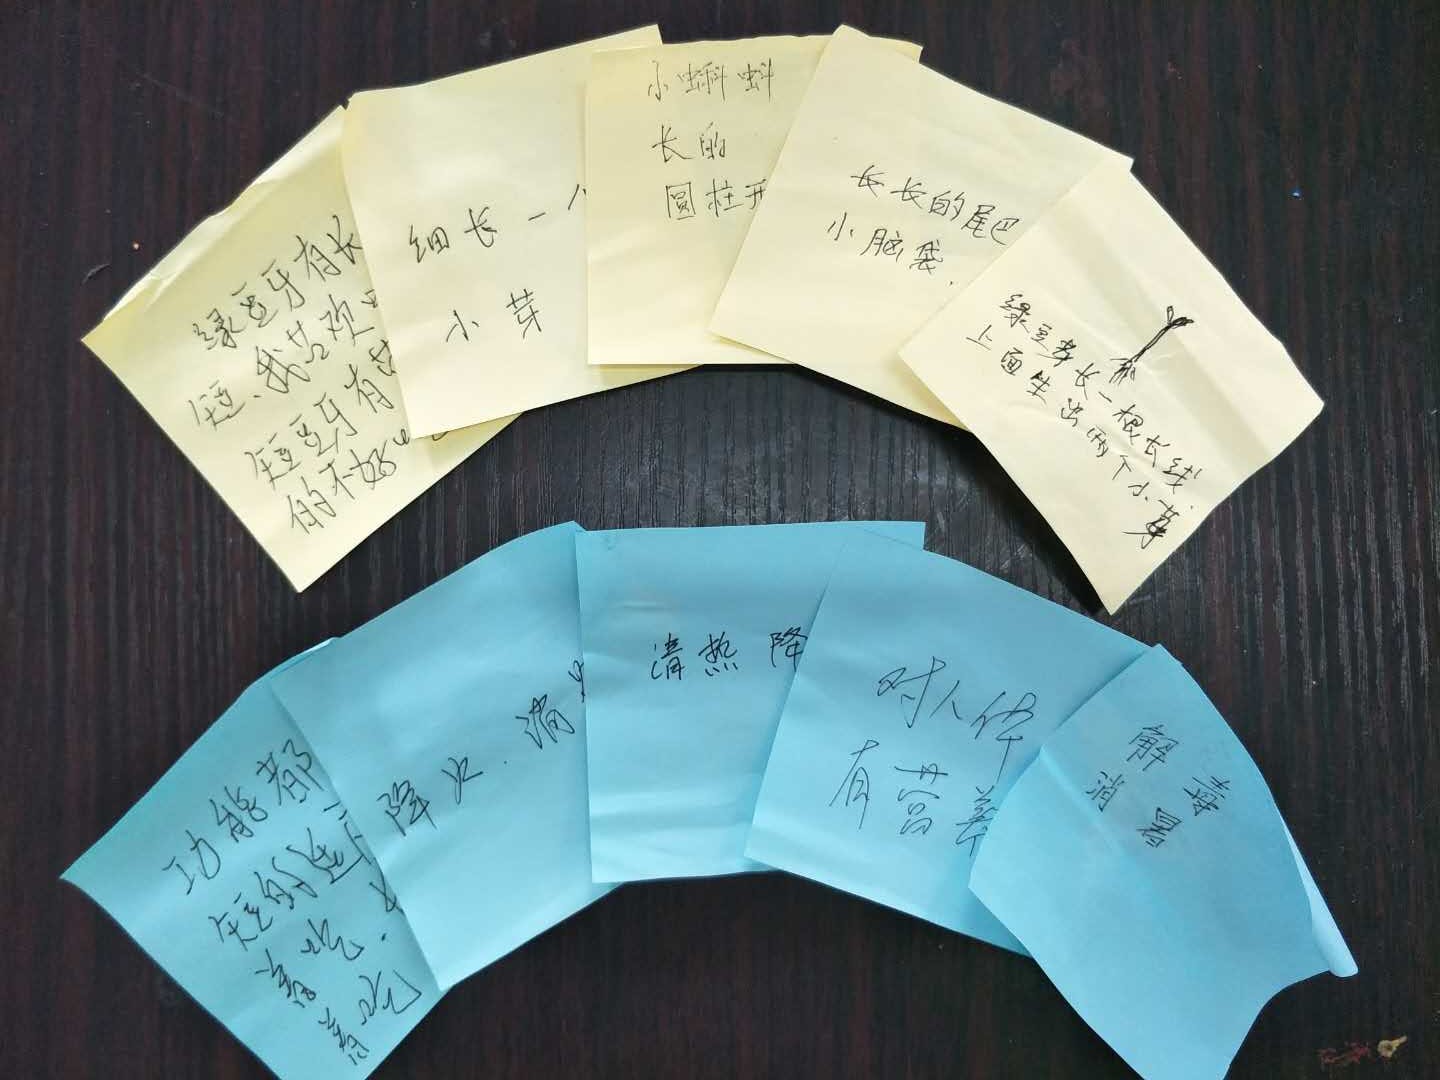 绿豆牙有长
短、我喜欢
短豆牙有
的不好
细长一
小芽
小蝌蚪
长的
圆柱
长长的尾巴
小脑袋.
绿豆芽长一根长线
上面生出两个小芽
功能都
短的
着吃.
着吃
降火.消
清热降
对人体
有营养
解毒
消暑